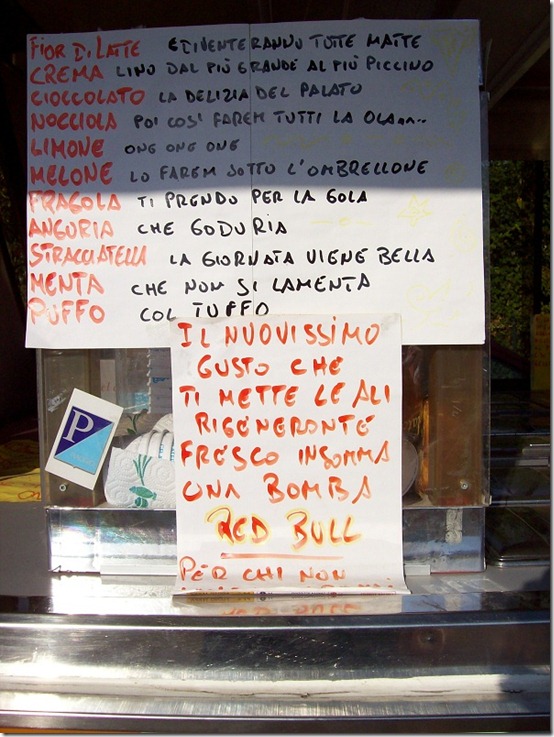 FIOR DI LATTE E DIVENTERANNO TUTTE MATTE
CREMA LINO DAL PIÙ GRANDE AL PIÙ PICCINO
CIOCCOLATO LA DELIZIA DEL PALATO
NOCCIOLA POI COSÌ FAREM TUTTI LA OLA....
LIMONE ONE ONE ONE
MELONE LO FAREM SOTTO L'OMBRELLONE
FRAGOLA TI PRENDO PER LA GOLA
ANGURIA CHE GODURIA
STRACCIATELLA LA GIORNATA VIENE BELLA
MENTA CHE NON SI LAMENTA
PUFFO COL TUFFO
IL NUOVISSIMO
GUSTO CHE
TI METTE LE ALI
RIGENERONTE
FRESCO INSOMMA
UNA BOMBA
RED BULL
PER CHI NON
P